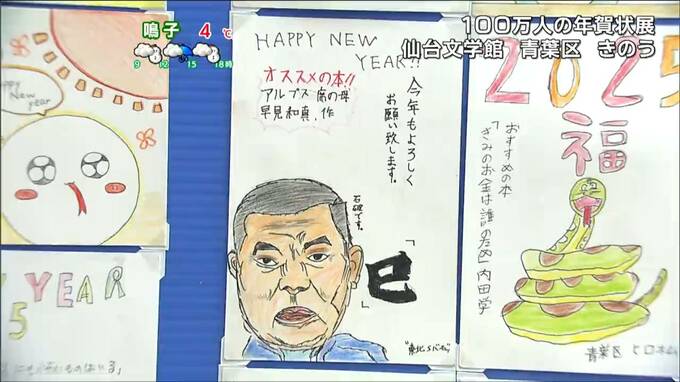 鳴子 4℃
9 12 15 18時
100万人の年賀状展
仙台文学館 青葉区 きのう
Happy New
year
YEAR
5
HAPPY NEW
YEAR!!
オススメの本!!
アルプス席の母
早見和真.作
今年もよろしく
お願い致します。
石破です。
「巳」
2025
福
おすすめの本
「きみのお金は誰のため」内田学
青葉区 ヒロホム